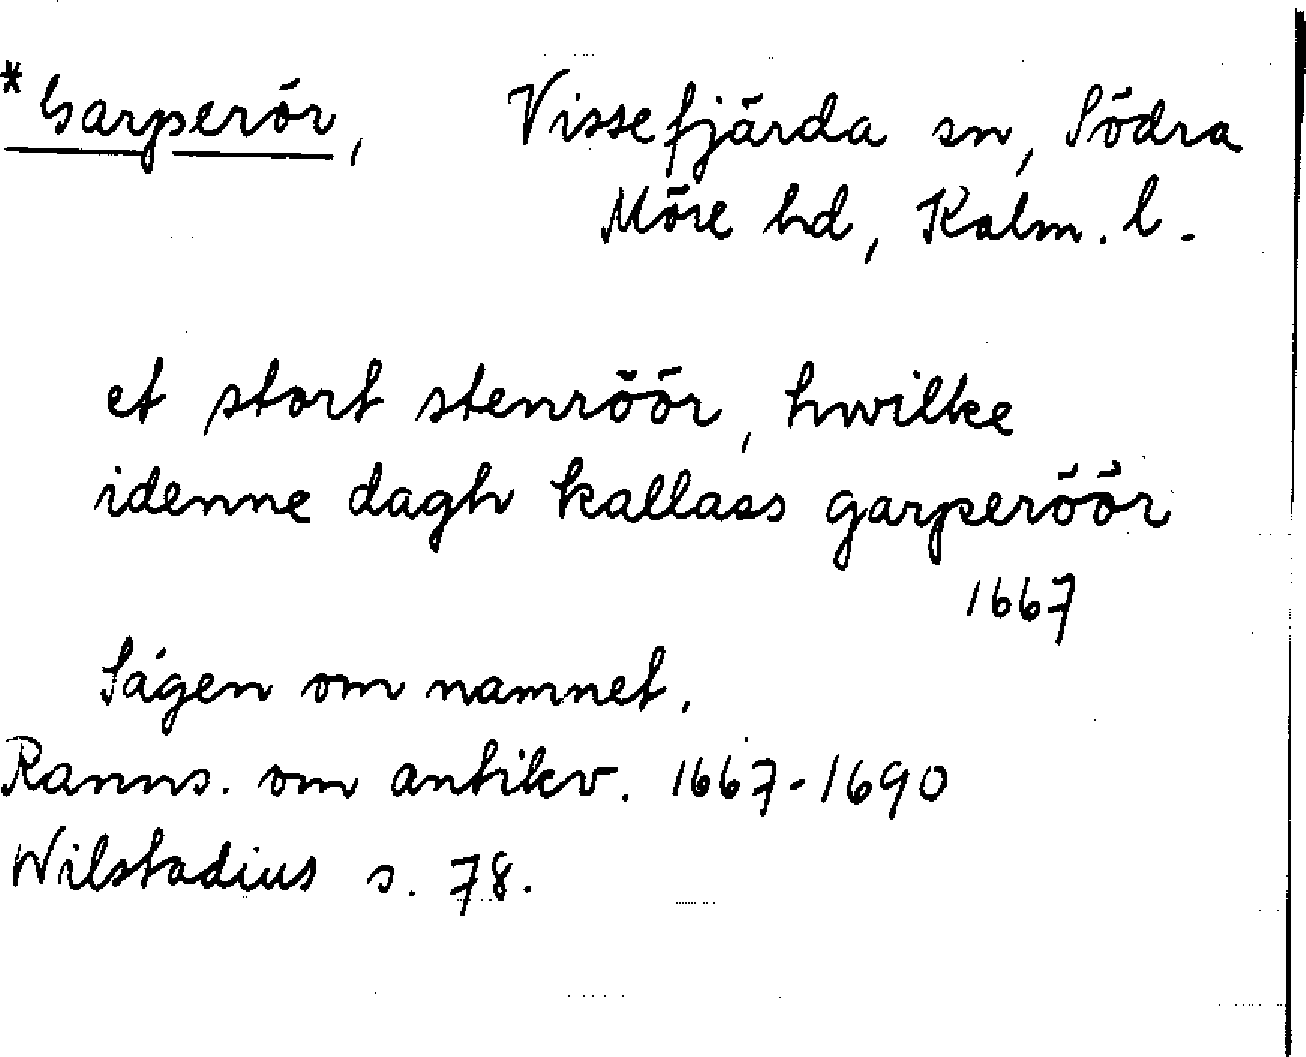 *Garperör, Vissefjärda sn, Södra
Möre hd, Kalm. l.
et stort stenröör, hwilke
idenne dagh kallass garperöör
1667
Sägen om namnet.
Ranns. om antikv. 1667-1690
Wilstadius s. 78.